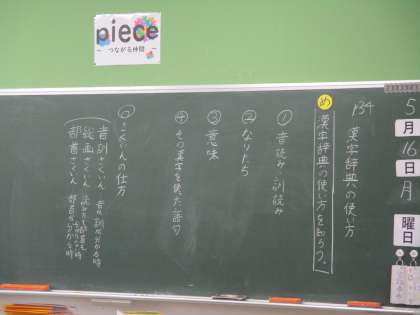 piece
~ つながる仲間 ~
5
月
16
日
月
曜日
P34 漢字辞典の使い方
め 漢字辞典の使い方を知ろう。
① 音読み・訓読み
② なりたち
③ 意味
④ その漢字を使った語句
◎ さくいんの仕方
音訓さくいん 音か訓が分かる時
総画さくいん 読みも部首も分からない時
部首さくいん 部首が分かる時